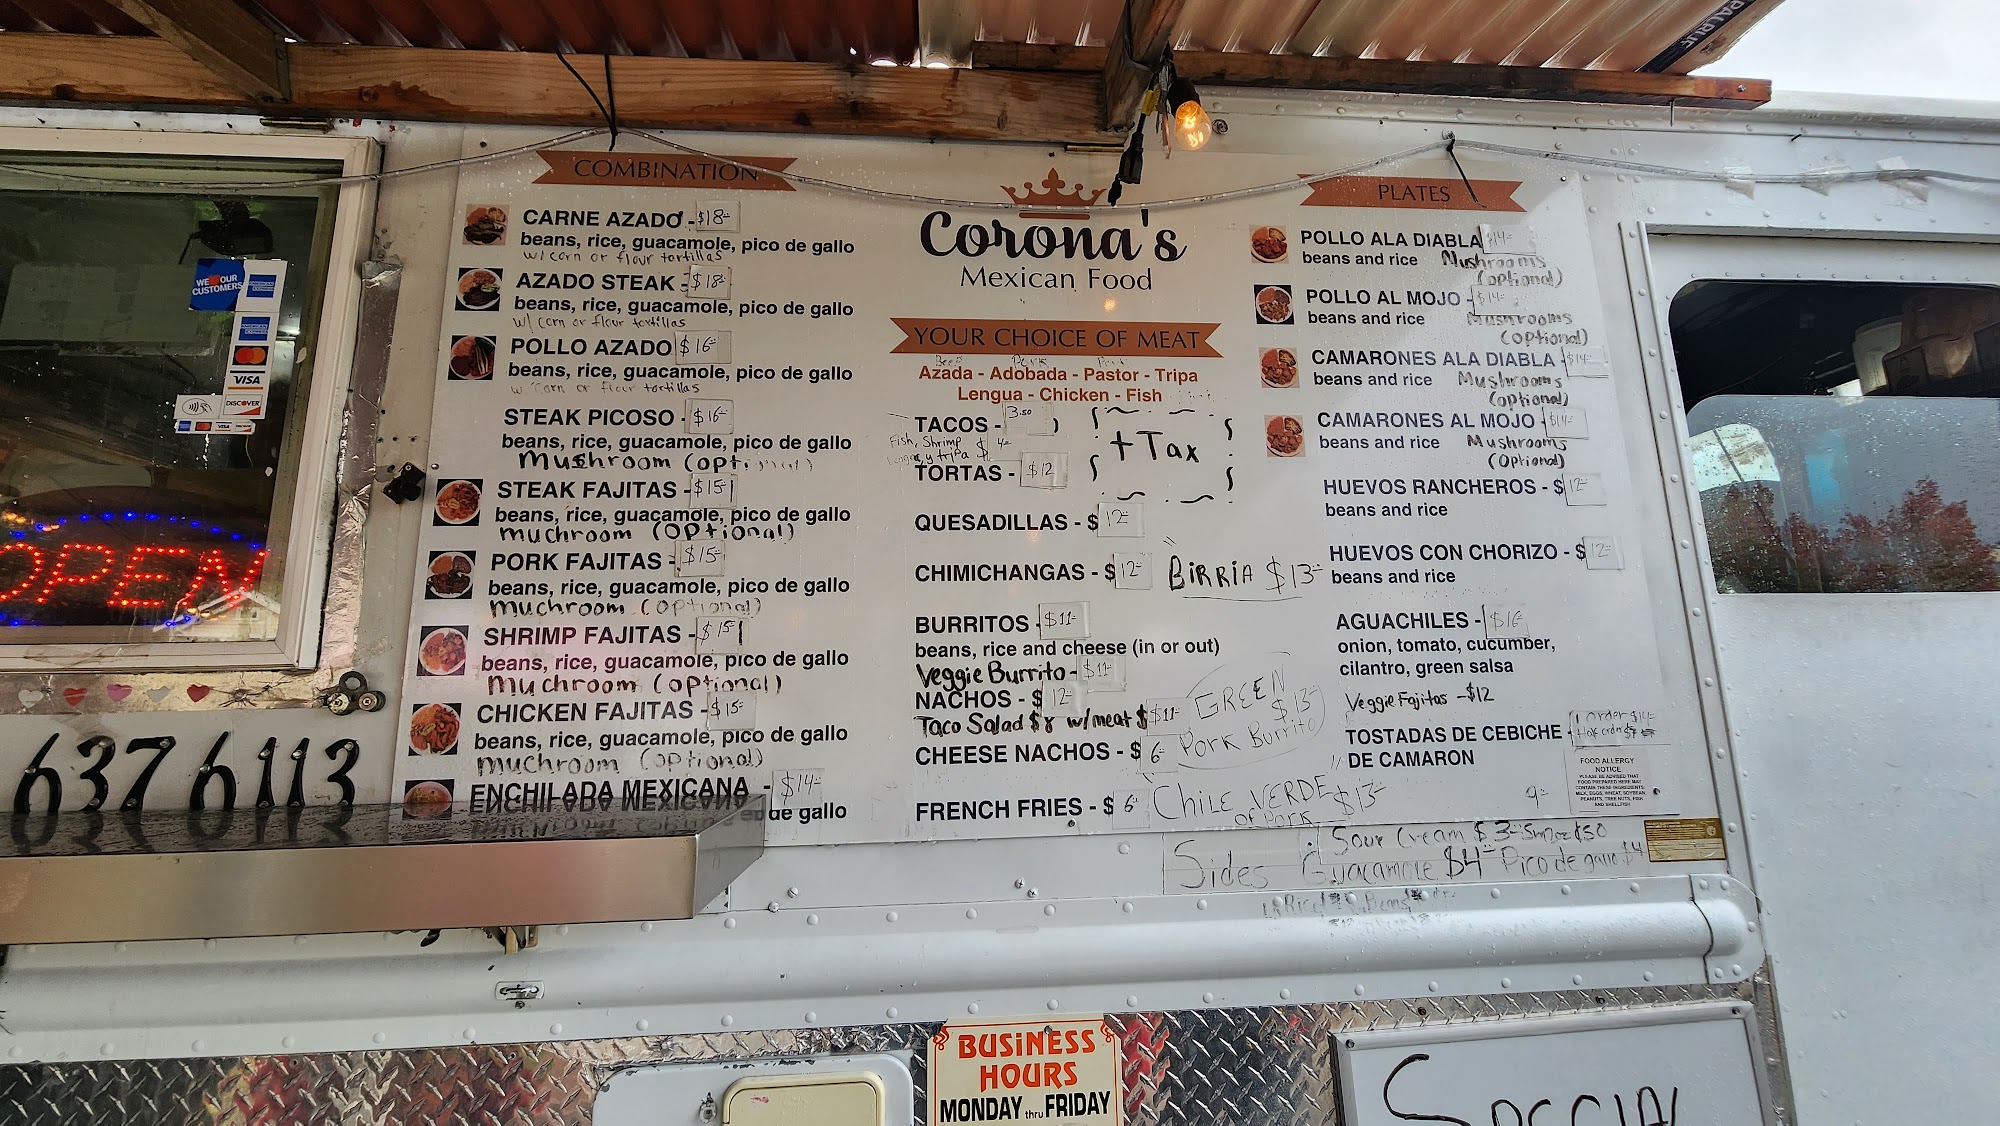 PALRUF
WE OUR
CUSTOMERS
AMERICAN EXPRESS
VISA
DISCOVER
OPEN
637 6113
COMBINATION
CARNE AZADO - $18-
beans, rice, guacamole, pico de gallo
w/ corn or flour tortillas
AZADO STEAK - $18-
beans, rice, guacamole, pico de gallo
w/ corn or flour tortillas
POLLO AZADO $16-
beans, rice, guacamole, pico de gallo
w/ corn or flour tortillas
STEAK PICOSO - $16-
beans, rice, guacamole, pico de gallo
Mushroom (optional)
STEAK FAJITAS - $15-
beans, rice, guacamole, pico de gallo
muchroom (optional)
PORK FAJITAS - $15-
beans, rice, guacamole, pico de gallo
muchroom (optional)
SHRIMP FAJITAS - $15-
beans, rice, guacamole, pico de gallo
muchroom (optional)
CHICKEN FAJITAS - $15-
beans, rice, guacamole, pico de gallo
muchroom (optional)
ENCHILADA MEXICANA - $14-
de gallo
Corona's
Mexican Food
YOUR CHOICE OF MEAT
Beef Pork Pork
Azada - Adobada - Pastor - Tripa
Lengua - Chicken - Fish
TACOS - 3.50
Fish, Shrimp $ 4-
Lengua y tripa $
+ Tax
TORTAS - $12
QUESADILLAS - $12-
CHIMICHANGAS - $12-
BIRRIA $13-
BURRITOS $11-
beans, rice and cheese (in or out)
Veggie Burrito - $11-
NACHOS - $12-
Taco Salad $8 w/meat $ $11-
GREEN
$13-
Pork Burrito
CHEESE NACHOS - $6-
FRENCH FRIES - $6-
CHILE VERDE $13-
OF PORK
PLATES
POLLO ALA DIABLA $14-
beans and rice Mushrooms
(optional)
POLLO AL MOJO - $14-
beans and rice Mushrooms
(optional)
CAMARONES ALA DIABLA - $14-
beans and rice Mushrooms
(optional)
CAMARONES AL MOJO - $14-
beans and rice Mushrooms
(Optional)
HUEVOS RANCHEROS - $12-
beans and rice
HUEVOS CON CHORIZO - $12-
beans and rice
AGUACHILES - $16-
onion, tomato, cucumber,
cilantro, green salsa
Veggie Fajitas - $12
TOSTADAS DE CEBICHE - 1 order $14-
Half order $7
DE CAMARON
9-
FOOD ALLERGY
NOTICE
PLEASE BE ADVISED THAT
FOOD PREPARED HERE MAY
CONTAIN THESE INGREDIENTS:
MILK, EGGS, WHEAT, SOYBEAN,
PEANUTS, TREE NUTS, FISH
AND SHELLFISH
Sides
Sour Cream $3-
Guacamole $4- Pico de gallo $4
Rice Beans
BUSINESS
HOURS
MONDAY thru FRIDAY
SPECIAL